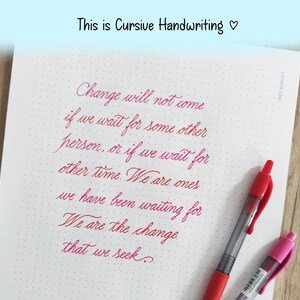 This is Cursive Handwriting ♡
Change will not come
if we wait for some other
person, or if we wait for
other time. We are ones
we have been waiting for
We are the change
that we seek.